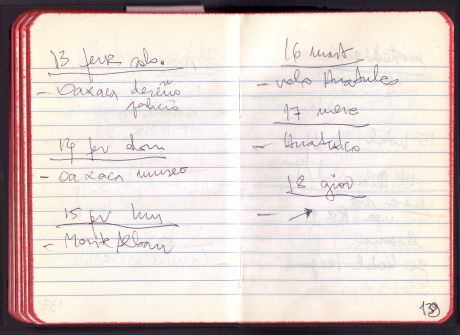 13 febr sab.
- Oaxaca diseño
palacio
14 fev dom
- Oaxaca museo
15 fev lun
- Monte Alban
16 mart
- volo Huatulco
17 merc
- Huatulco
18 giov
- →
139